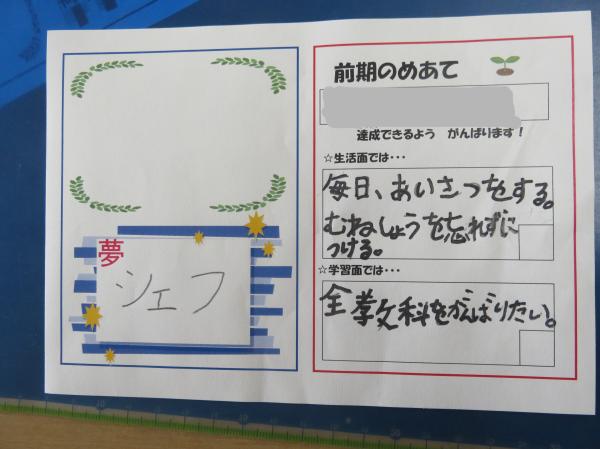 夢
シェフ
前期のめあて
達成できるよう がんばります!
☆生活面では・・・
毎日、あいさつをする。
むねしょうを忘れずに
つける。
☆学習面では・・・
全教科をがんばりたい。